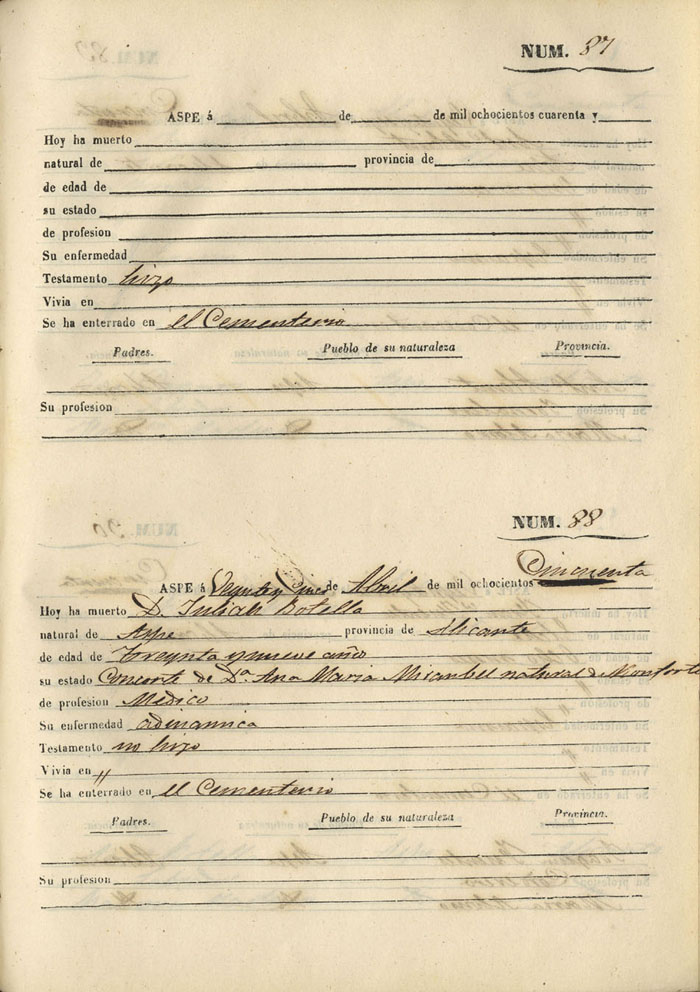 NUM. 87
ASPE á de de mil ochocientos cuarenta y
Hoy ha muerto
natural de provincia de
de edad de
su estado
de profesion
Su enfermedad
Testamento hizo
Vivia en
Se ha enterrado en el Cementerio
Padres. Pueblo de su naturaleza Provincia.
Su profesion
NUM. 88
ASPE á Veynte y Cinco de Abril de mil ochocientos Cincuenta
Hoy ha muerto D. Julian Botella
natural de Aspe provincia de Alicante
de edad de treynta y nueve año
su estado Consorte de Dª. Ana Maria Mirambel natural de Monforte
de profesion Medico
Su enfermedad adinamica
Testamento no hizo
Vivia en "
Se ha enterrado en el Cementerio
Padres. Pueblo de su naturaleza Provincia.
Su profesion